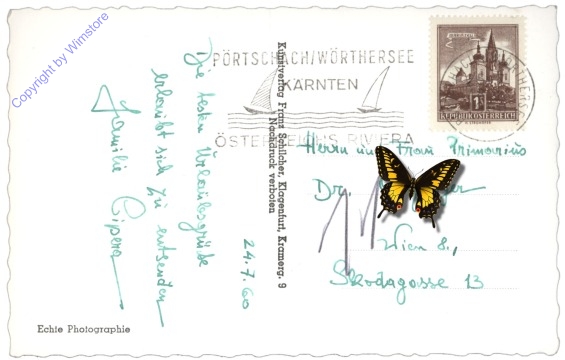 Copyright by Wimstore
Die besten Urlaubsgrüße
erlaubt sich zu entsenden
Familie
24.7.60
Kunstverlag Franz Schilcher, Klagenfurt, Kramerg. 9
Nachdruck verboten
PÖRTSCHACH/WÖRTHERSEE
KÄRNTEN
ÖSTERREICHS RIVIERA
REPUBLIK ÖSTERREICH
Herrn und Frau Primarius
Dr.
Wien 8.,
Skodagasse 13
Echte Photographie